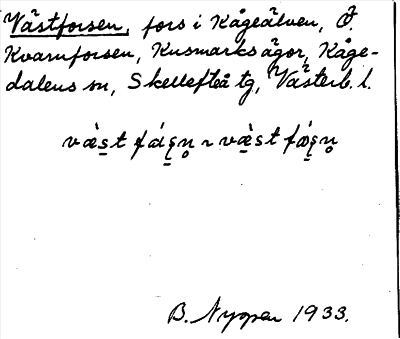 Västforsen, fors i Kågeälven, Ö.
Kvarnforsen, Kusmarks ägor, Kåge-
dalens sn, Skellefteå tg, Västerb. l.
B. Nygren 1933.